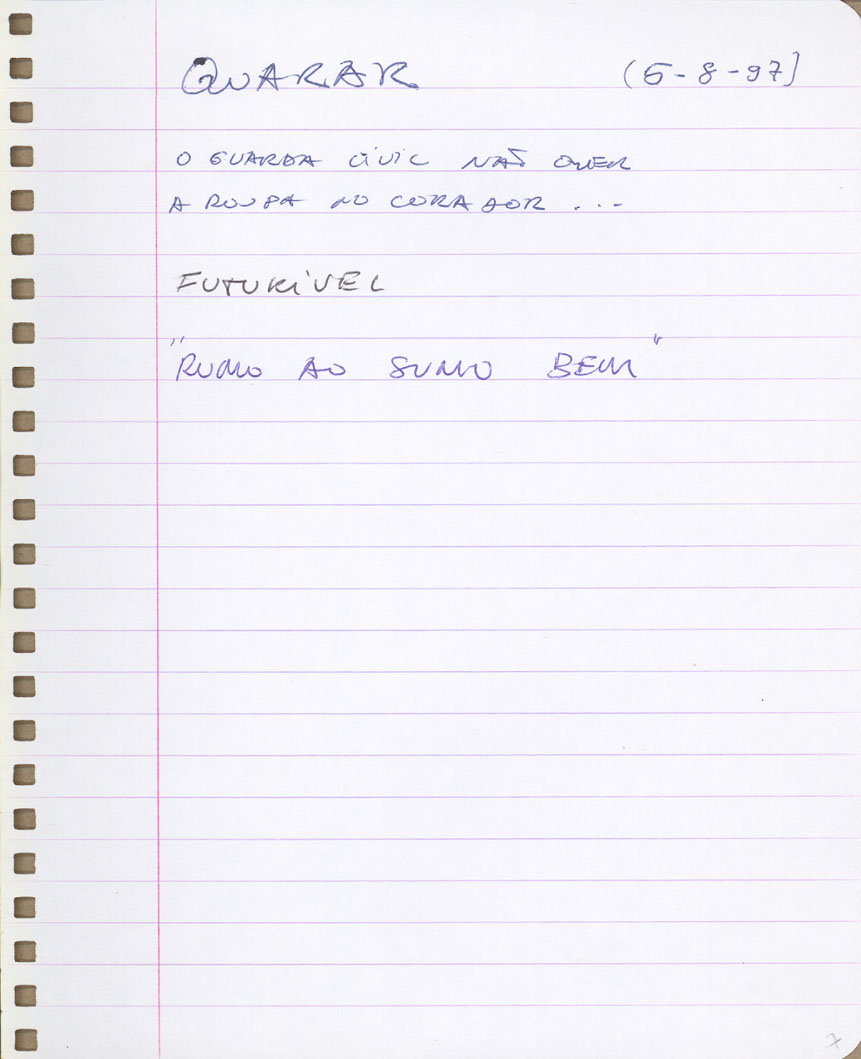 QUARAR (5-8-97)
O GUARDA CIVIL NÃO QUER
A ROUPA NO CORADOR ...
FUTURÍVEL
"RUMO AO SUMO BEM"
7